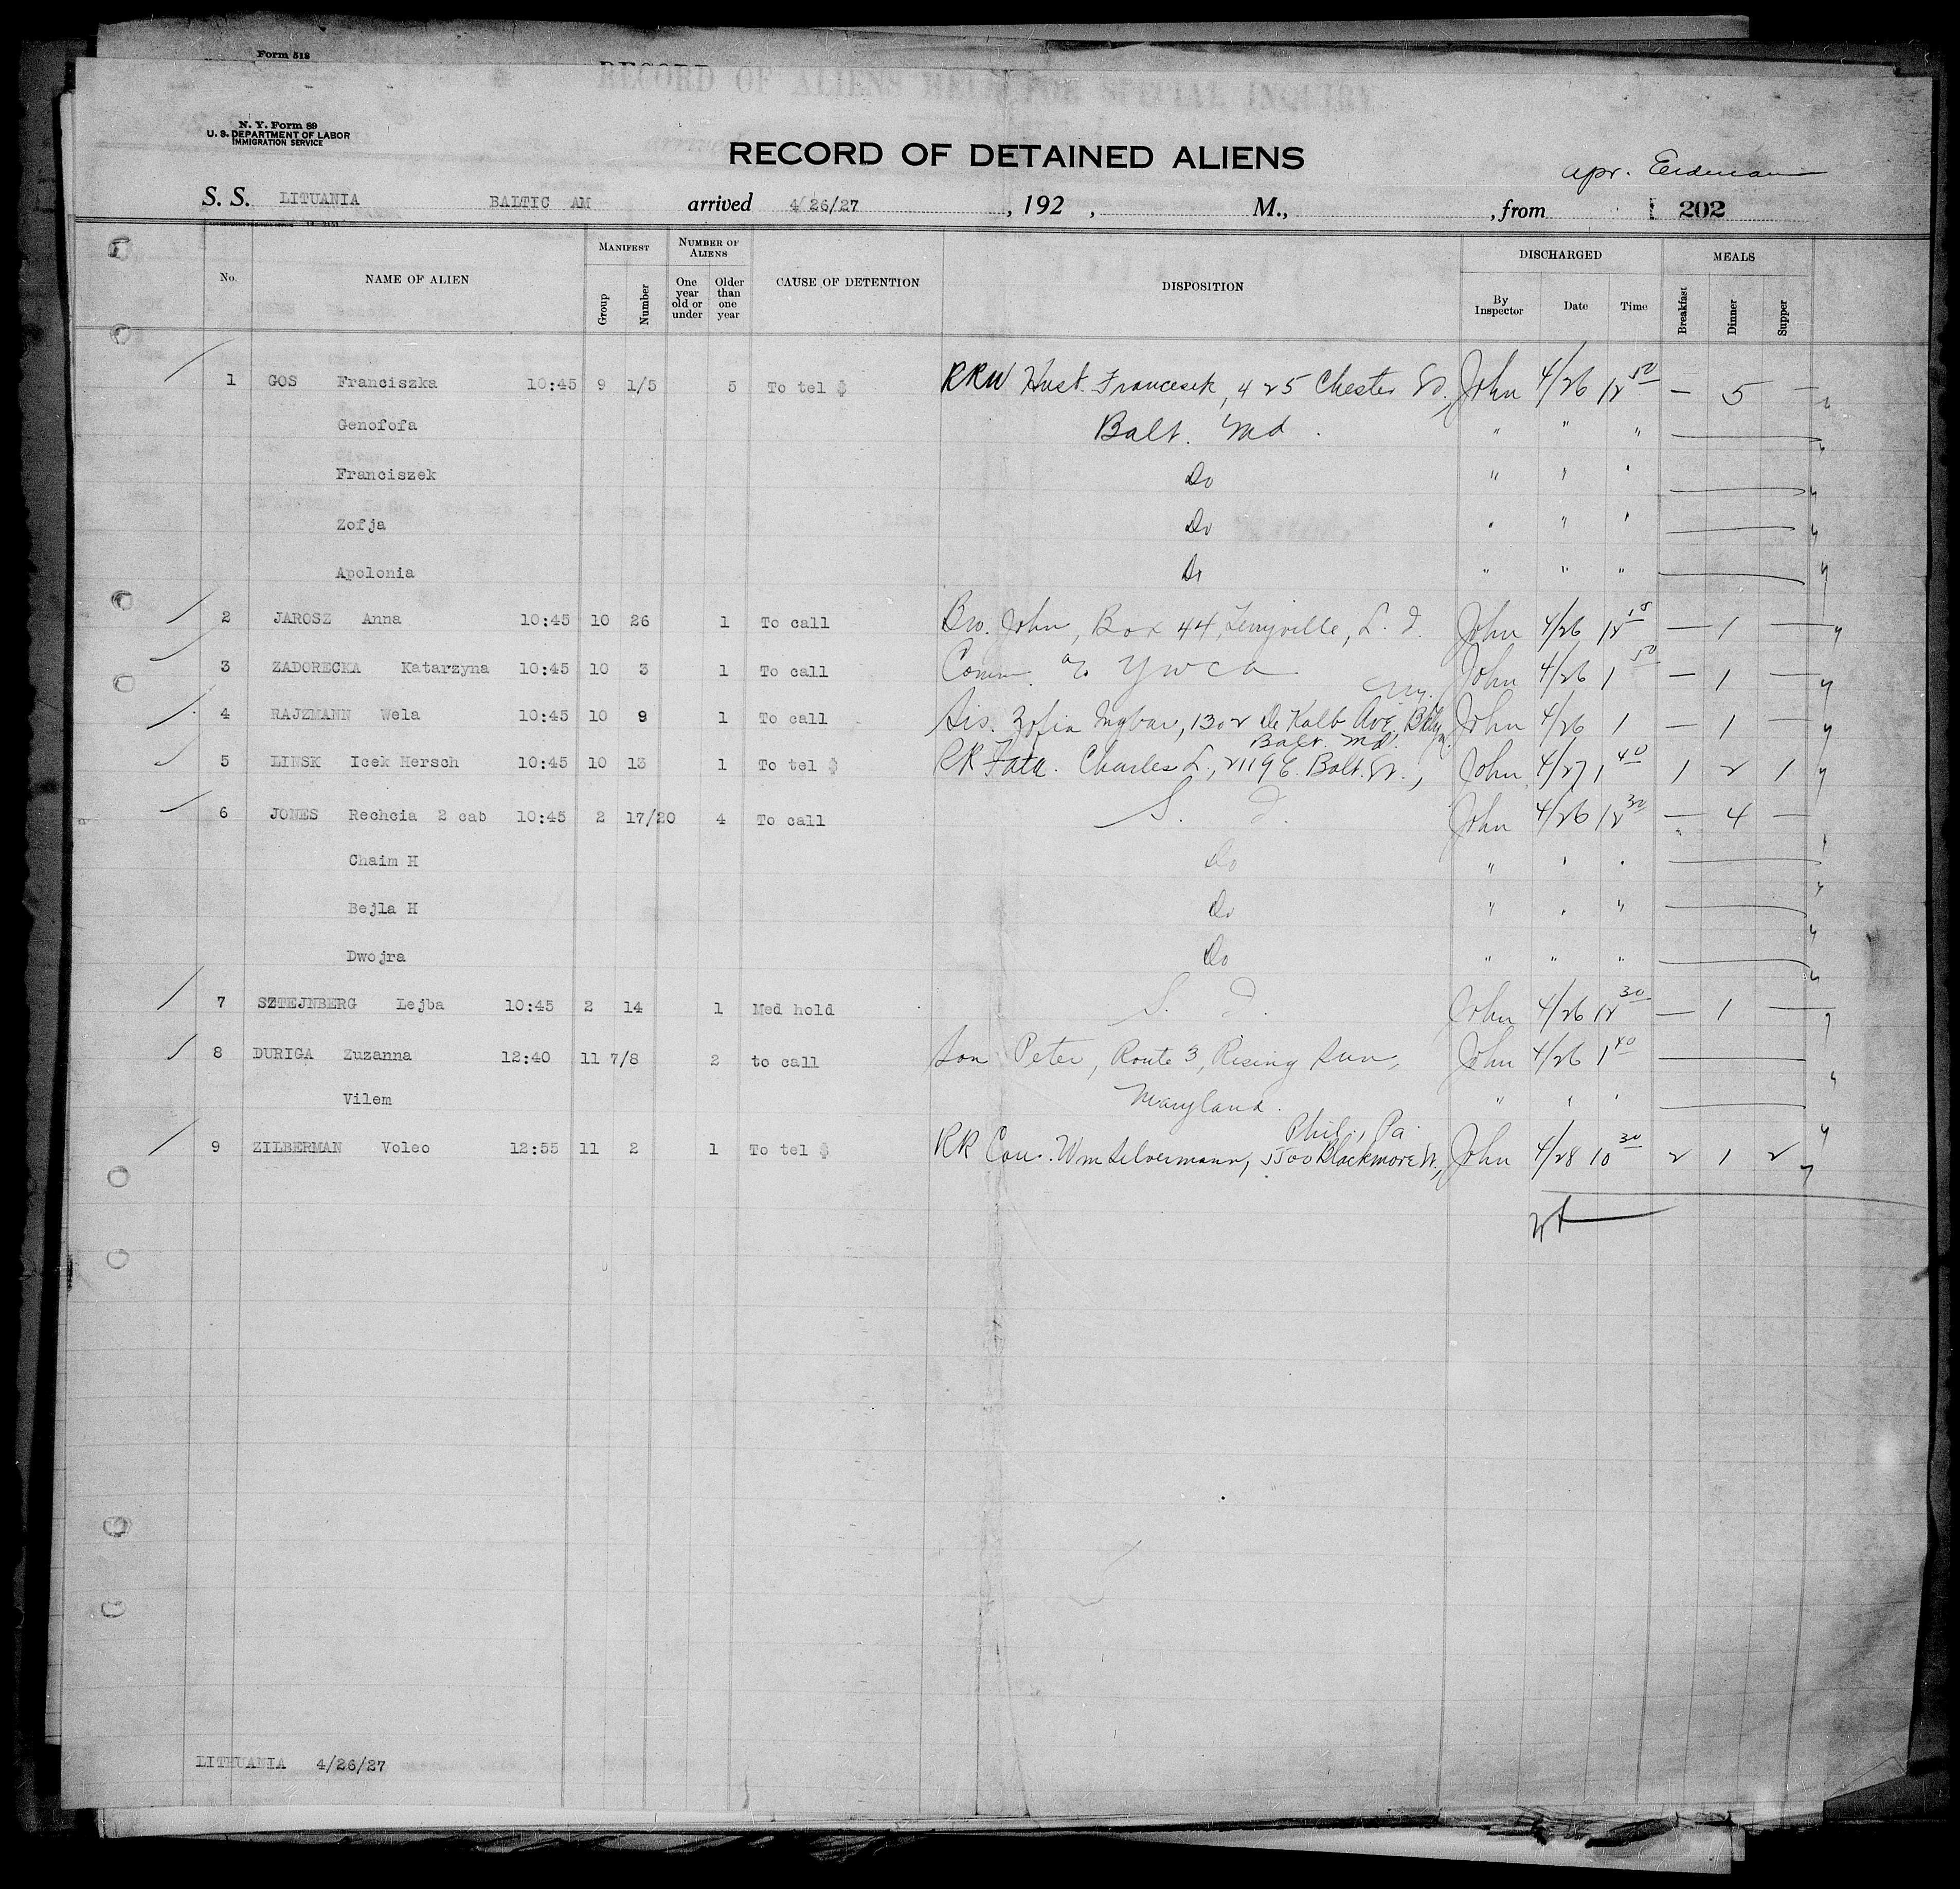 Form 518
RECORD OF ALIENS HELD FOR SPECIAL INQUIRY
N. Y. Form 89
U. S. DEPARTMENT OF LABOR
IMMIGRATION SERVICE
RECORD OF DETAINED ALIENS
S. S. LITUANIA BALTIC AM arrived 4/26/27 , 192 , M., , from 202
No. NAME OF ALIEN MANIFEST Group Number NUMBER OF ALIENS One year old or under Older than one year CAUSE OF DETENTION DISPOSITION DISCHARGED By Inspector Date Time MEALS Breakfast Dinner Supper
1 GOS Franciszka 10:45 9 1/5 5 To tel $ Hust. Francesek, 425 Chester St., John 4/26 12 50 — 5 —
Genofofa Balt. Md. " " "
Franciszek Do " " "
Zofja Do " " "
Apolonia Do " " "
2 JAROSZ Anna 10:45 10 26 1 To call Bro. John, Box 44, Terryville, L. I. John 4/26 12 — 1 —
3 ZADORECKA Katarzyna 10:45 10 3 1 To call Comm. YWCA John 4/26 1 50 — 1 —
4 RAJZMANN Wela 10:45 10 9 1 To call Sis. Zofia Ingbar, 1302 De Kalb Ave, Bklyn. John 4/26 1 — 1 —
5 LINSK Icek Hersch 10:45 10 13 1 To tel $ RR Fata. Charles L., 2119 E. Balt. St., Balt. Md. John 4/27 1 40 1 2 1
6 JONES Rechcia 2 cab 10:45 2 17/20 4 To call S. I. John 4/26 12 30 — 4 —
Chaim H Do " " "
Bejla H Do " " "
Dwojra Do " " "
7 SZTEJNBERG Lejba 10:45 2 14 1 Med hold S. I. John 4/26 12 30 — 1 —
8 DURIGA Zuzanna 12:40 11 7/8 2 to call Son Peter, Route 3, Rising Sun, John 4/26 1 40
Vilem Maryland. " " "
9 ZILBERMAN Voleo 12:55 11 2 1 To tel $ RR Cou. Wm Silvermann, 5500 Blackmore St., Phil., Pa. John 4/28 10 30 2 1 2
LITHUANIA 4/26/27